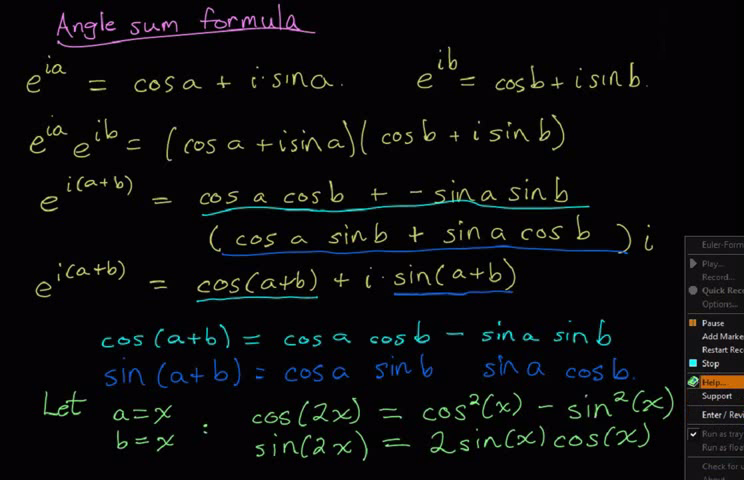 Angle sum formula
e^{ia} = cos a + i · sin a. e^{ib} = cos b + i sin b.
e^{ia} e^{ib} = (cos a + i sin a)(cos b + i sin b)
e^{i(a+b)} = cos a cos b + - sin a sin b
(cos a sin b + sin a cos b) i
e^{i(a+b)} = cos(a+b) + i · sin(a+b)
cos(a+b) = cos a cos b - sin a sin b
sin(a+b) = cos a sin b sin a cos b.
Let a=x : cos(2x) = cos²(x) - sin²(x)
b=x sin(2x) = 2 sin(x) cos(x)
Euler-Form
Play...
Record...
Quick Rec
Options...
Pause
Add Marke
Restart Rec
Stop
Help...
Support
Enter / Revi
Run as tray
Run as float
Check for u
About